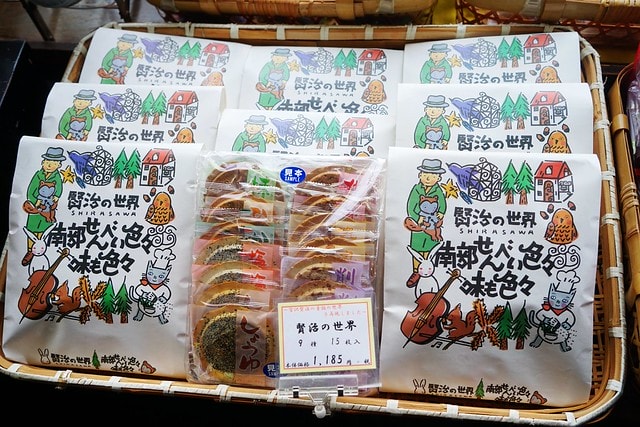 賢治の世界
SHIRASAWA
賢治の世界
SHIRASAWA
南部せんべい色々
賢治の世界
賢治の世界
SHIRASAWA
賢治の世界
賢治の世界
賢治の世界
SHIRASAWA
南部せんべい色々
味も色々
賢治の世界
南部せんべい色々
見本
SAMPLE
しょうゆ
見本
SAMPLE
賢治の世界
9種 15枚入
本体価格
1,185円
賢治の世界
SHIRASAWA
南部せんべい色々
味も色々
賢治の世界
南部せんべい色々